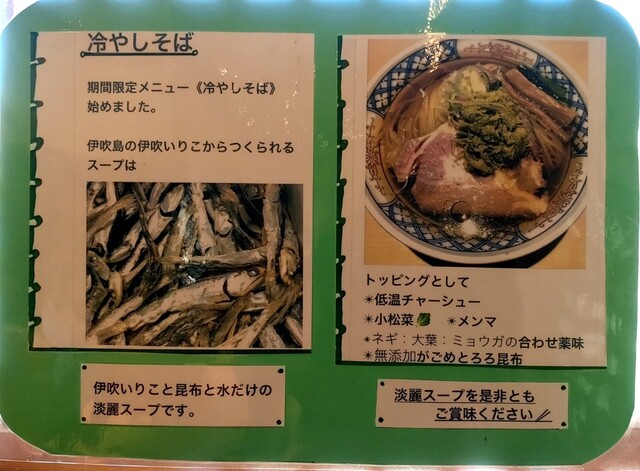 冷やしそば
期間限定メニュー《冷やしそば》
始めました。
伊吹島の伊吹いりこからつくられる
スープは
伊吹いりこと昆布と水だけの
淡麗スープです。
トッピングとして
✴低温チャーシュー
✴小松菜🥬 ✴メンマ
✴ネギ：大葉：ミョウガの合わせ薬味
✴無添加がごめとろろ昆布
淡麗スープを是非とも
ご賞味ください